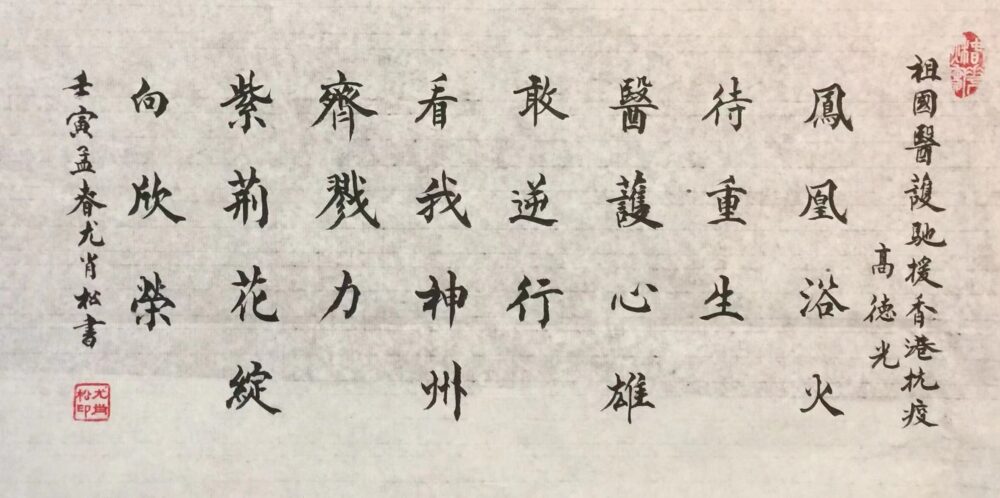 祖國醫護馳援香港抗疫
高德光
鳳凰浴火
待重生
醫護心雄
敢逆行
看我神州
齊戮力
紫荊花綻
向欣榮
壬寅孟春尤肖松書